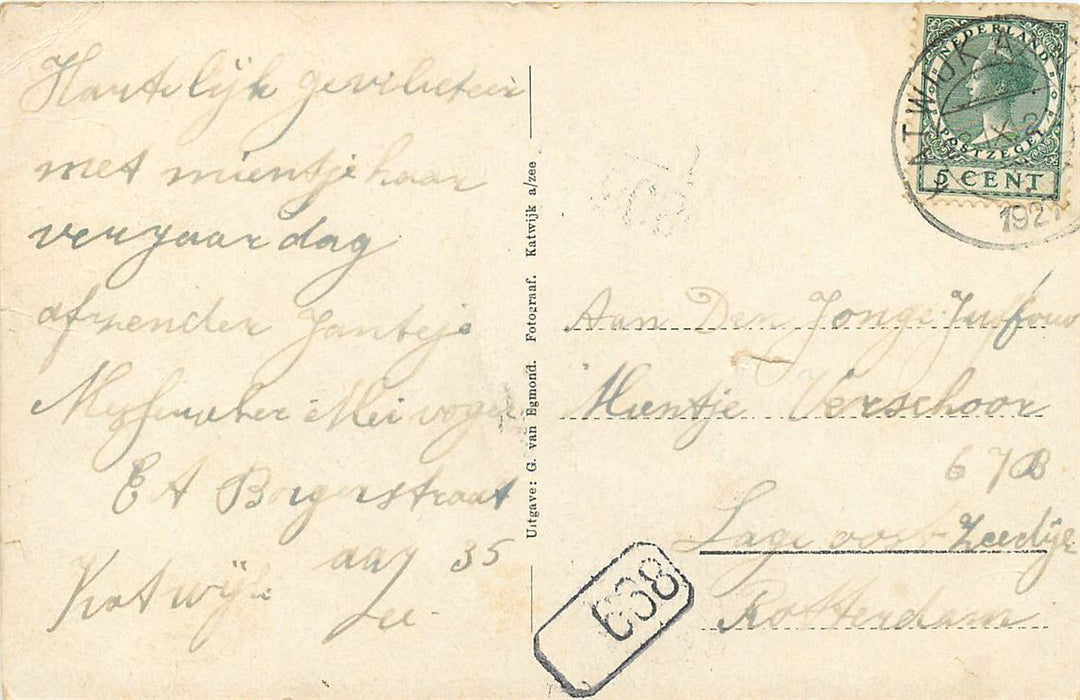 Hartelijk geviliceteer
met mientje haar
verjaardag
afzender Jantje
E A Borgerstraat
aan 35
Katwijk Zee
Uitgave: G. van Egmond. Fotograaf. Katwijk a/zee
NEDERLAND
POSTZEGEL
5 CENT
KATWIJK A
1927
Aan Den Jonge Juffrouw
Mientje Verschoor
67B
Lage oost Zeedije
Rotterdam
638